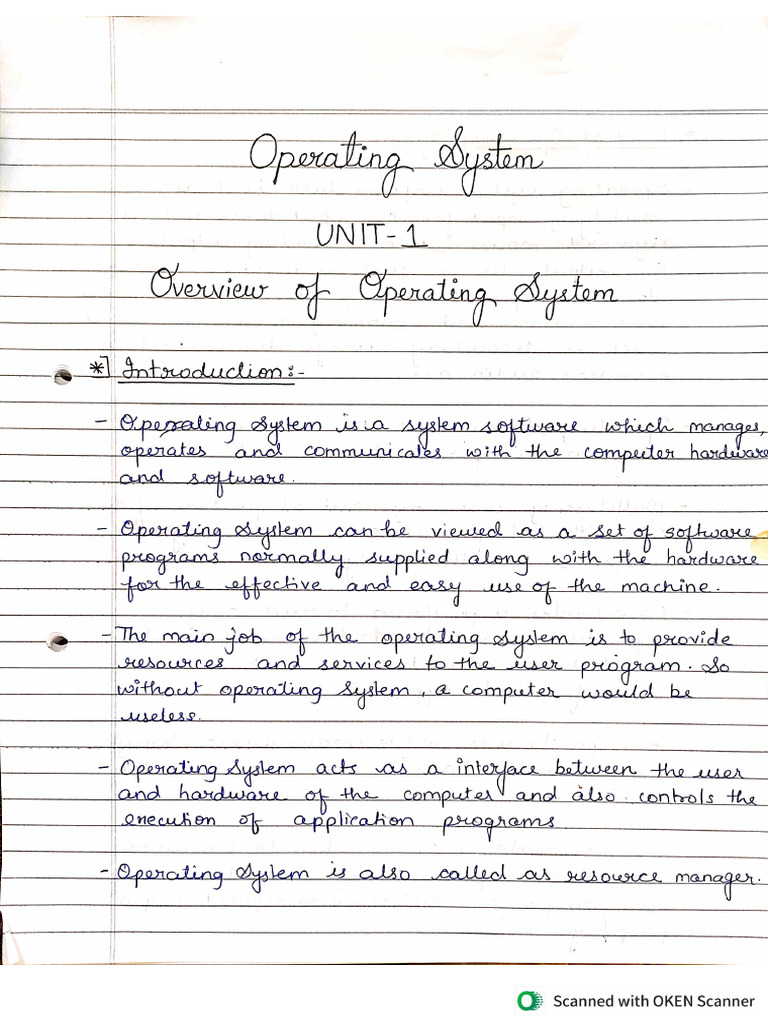 Operating System
UNIT-1
Overview of Operating System
*] Introduction:-
- Operating System is a system software which manages,
operates and communicates with the computer hardware
and software.
- Operating System can be viewed as a set of software
programs normally supplied along with the hardware
for the effective and easy use of the machine.
- The main job of the operating System is to provide
resources and services to the user program. So
without operating System, a computer would be
useless.
- Operating System acts as a interface between the user
and hardware of the computer and also controls the
execution of application programs.
- Operating System is also called as resource manager.
Scanned with OKEN Scanner